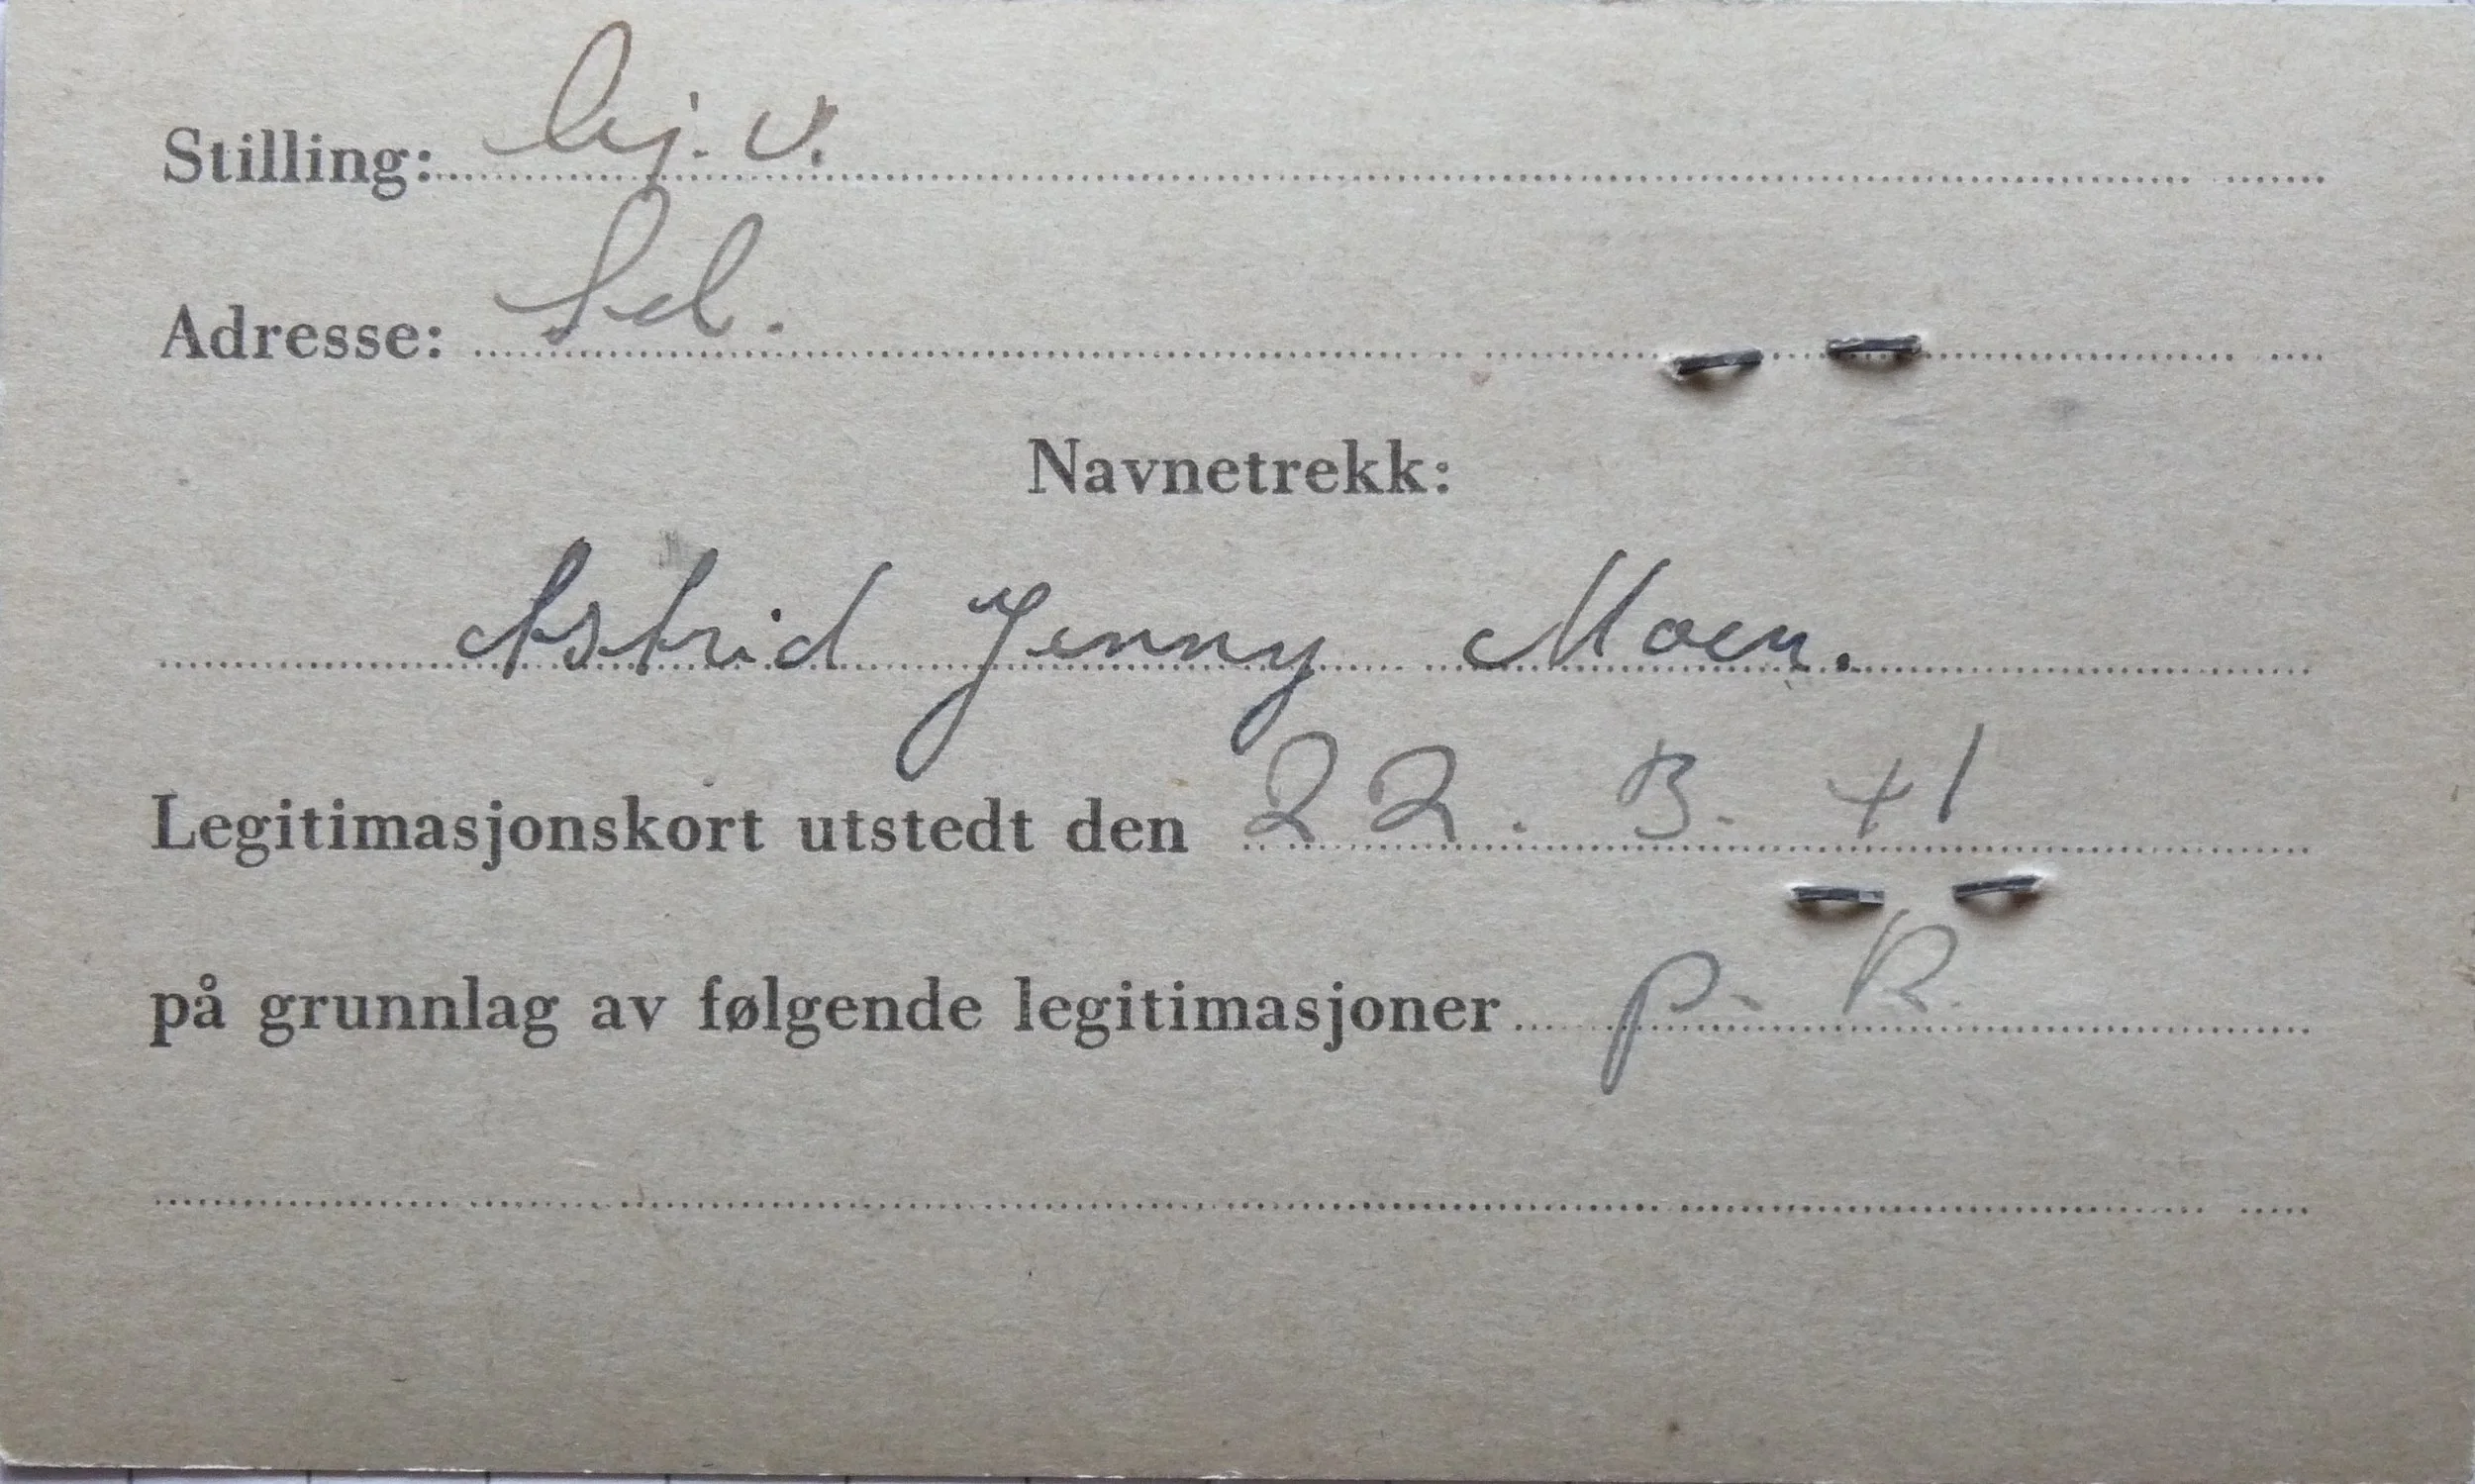 Stilling: hj. v.
Adresse: Sel.
Navnetrekk:
Astrid Jenny Moen.
Legitimasjonskort utstedt den 22. 3. 41
på grunnlag av følgende legitimasjoner P. R.